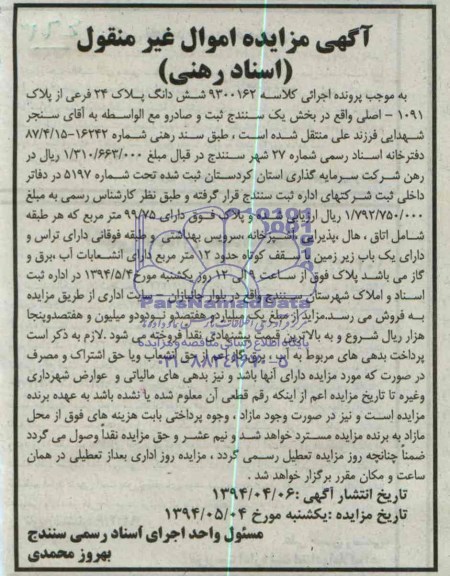 آگهی مزایده اموال غیر منقول
(اسناد رهنی)
به موجب پرونده اجرائی کلاسه ۹۳۰۰۱۶۲ شش دانگ پلاک ۲۴ فرعی از پلاک
۱۰۹۱ – اصلی واقع در بخش یک سنندج ثبت و صادرو مع الواسطه به آقای سنجر
شهدایی فرزند علی منتقل شده است ، طبق سند رهنی شماره ۱۶۲۴۲-۸۷/۴/۱۵
دفترخانه اسناد رسمی شماره ۲۷ شهر سنندج در قبال مبلغ ۱/۳۱۰/۶۶۳/۰۰۰ ریال در
رهن شرکت سرمایه گذاری استان کردستان ثبت شده تحت شماره ۵۱۹۷ در دفاتر
داخلی ثبت شرکتهای اداره ثبت سنندج قرار گرفته و طبق نظر کارشناس رسمی به مبلغ
۱/۷۹۲/۷۵۰/۰۰۰ ریال ارزیابی شده و پلاک فوق دارای ۹۹/۷۵ متر مربع که هر طبقه
شامل اتاق ، هال ،پذیرایی ،آشپزخانه ،سرویس بهداشتی و طبقه فوقانی دارای تراس و
دارای یک باب زیر زمین با سقف کوتاه حدود ۱۲ متر مربع دارای انشعابات آب ،برق و
گاز می باشد. پلاک فوق از ساعت ۹ الی ۱۲ روز یکشنبه مورخ ۱۳۹۴/۵/۴ در اداره ثبت
اسناد و املاک شهرستان سنندج واقع در بلوار جانبازان – سایت اداری از طریق مزایده
به فروش می رسد.مزاید از مبلغ یک میلیاردو هفتصدو نودودو میلیون و هفتصدوپنجا
هزار ریال شروع و به بالاترین قیمت پیشنهادی نقدا فروخته می شود .لازم به ذکر است
پرداخت بدهی های مربوط به آب ، برق،گاز اعم از حق انشعاب ویا حق اشتراک و مصرف
در صورت که مورد مزایده دارای آنها باشد و نیز بدهی های مالیاتی و عوارض شهرداری
وغیره تا تاریخ مزایده اعم از اینکه رقم قطعی آن معلوم شده یا نشده باشد به عهده برنده
مزایده است و نیز در صورت وجود مازاد ، وجوه پرداختی بابت هزینه های فوق از محل
مازاد به برنده مزایده مسترد خواهد شد و نیم عشر و حق مزایده نقداً وصول می گردد
ضمناً چنانچه روز مزایده تعطیل رسمی گردد ، مزایده روز اداری بعداز تعطیلی در همان
ساعت و مکان مقرر برگزار خواهد شد .
تاریخ انتشار آگهی :۱۳۹۴/۰۴/۰۶
تاریخ مزایده :یکشنبه مورخ ۱۳۹۴/۰۵/۰۴
مسئول واحد اجرای اسناد رسمی سنندج
بهروز محمدی
ParsNamadData
پایگاه اطلاع رسانی مناقصه و مزایده